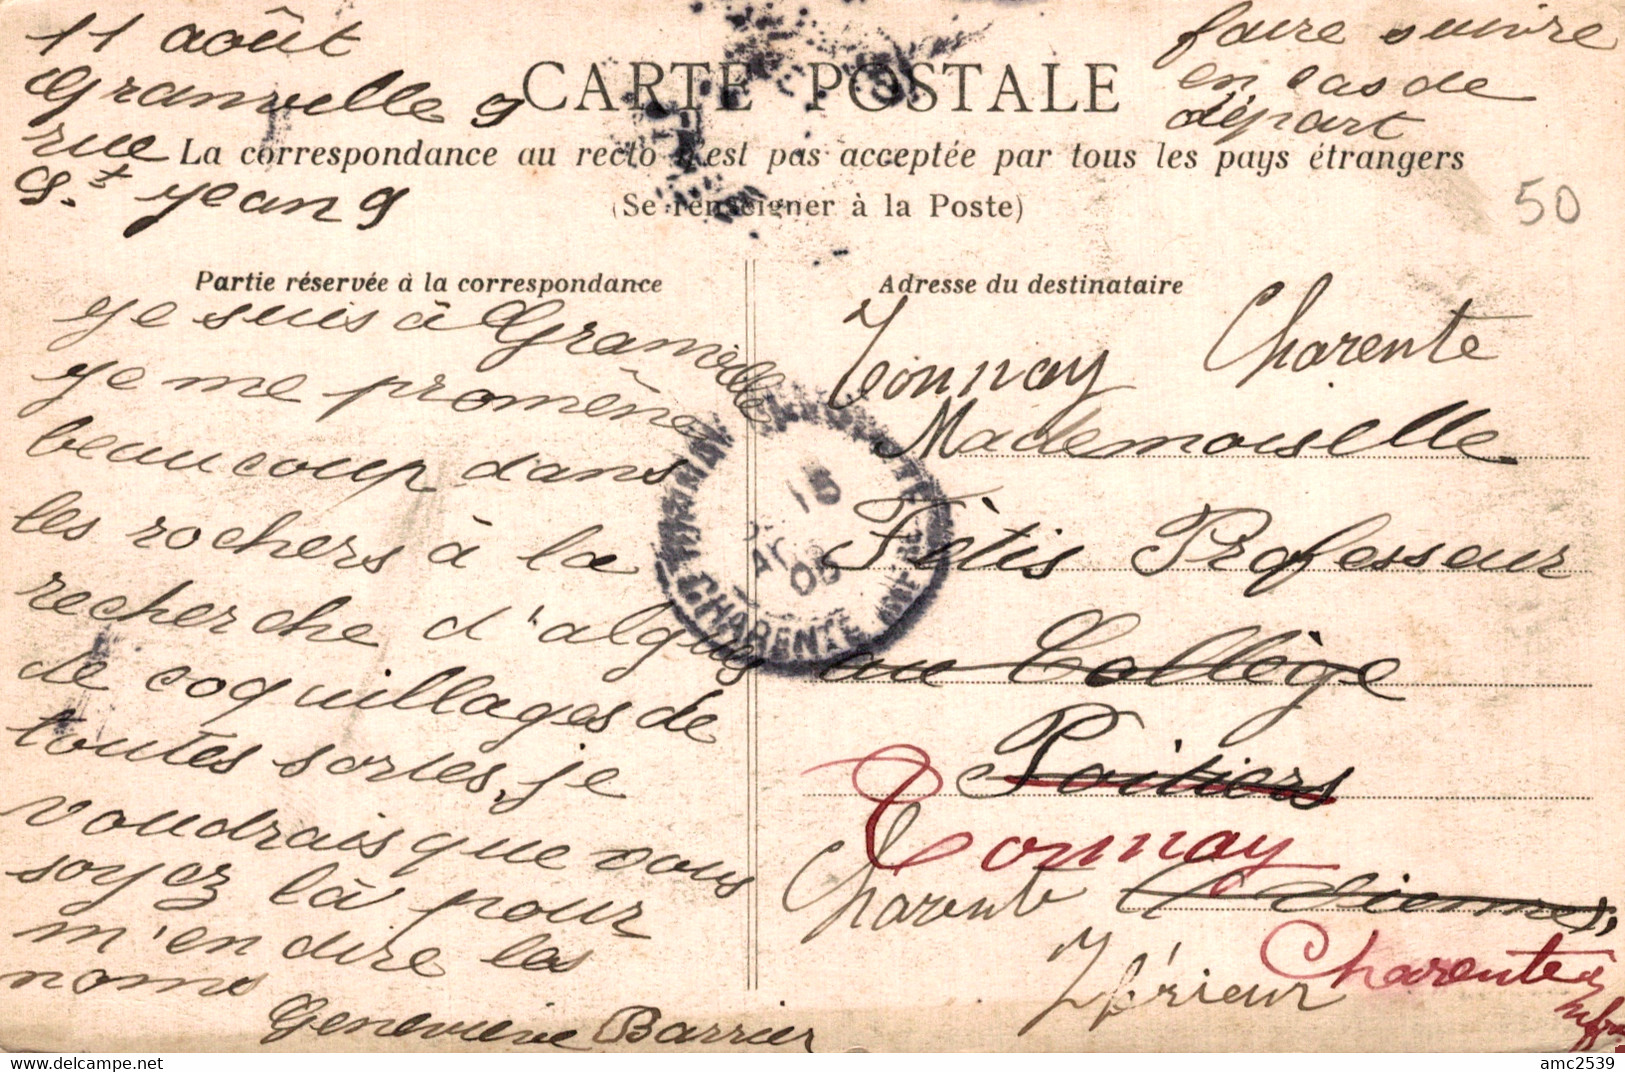 11 août
Granville 9
rue
St Jean 9
faire suivre
en cas de
départ
CARTE POSTALE
La correspondance au recto n'est pas acceptée par tous les pays étrangers
(Se renseigner à la Poste)
50
Partie réservée à la correspondance
Je suis à Granville
je me promène
beaucoup dans
les rochers à la
recherche d'algues
de coquillages de
toutes sortes, je
voudrais que vous
soyez là pour
m'en dire les
noms
Geneviève Barrier
Adresse du destinataire
Tonnay Charente
Mademoiselle
Fétis Professeur
au Collège
Poitiers
Tonnay
Charente
Vienne
Iférieur
Charente
Infre
15
08
CHARENTE
amc2539